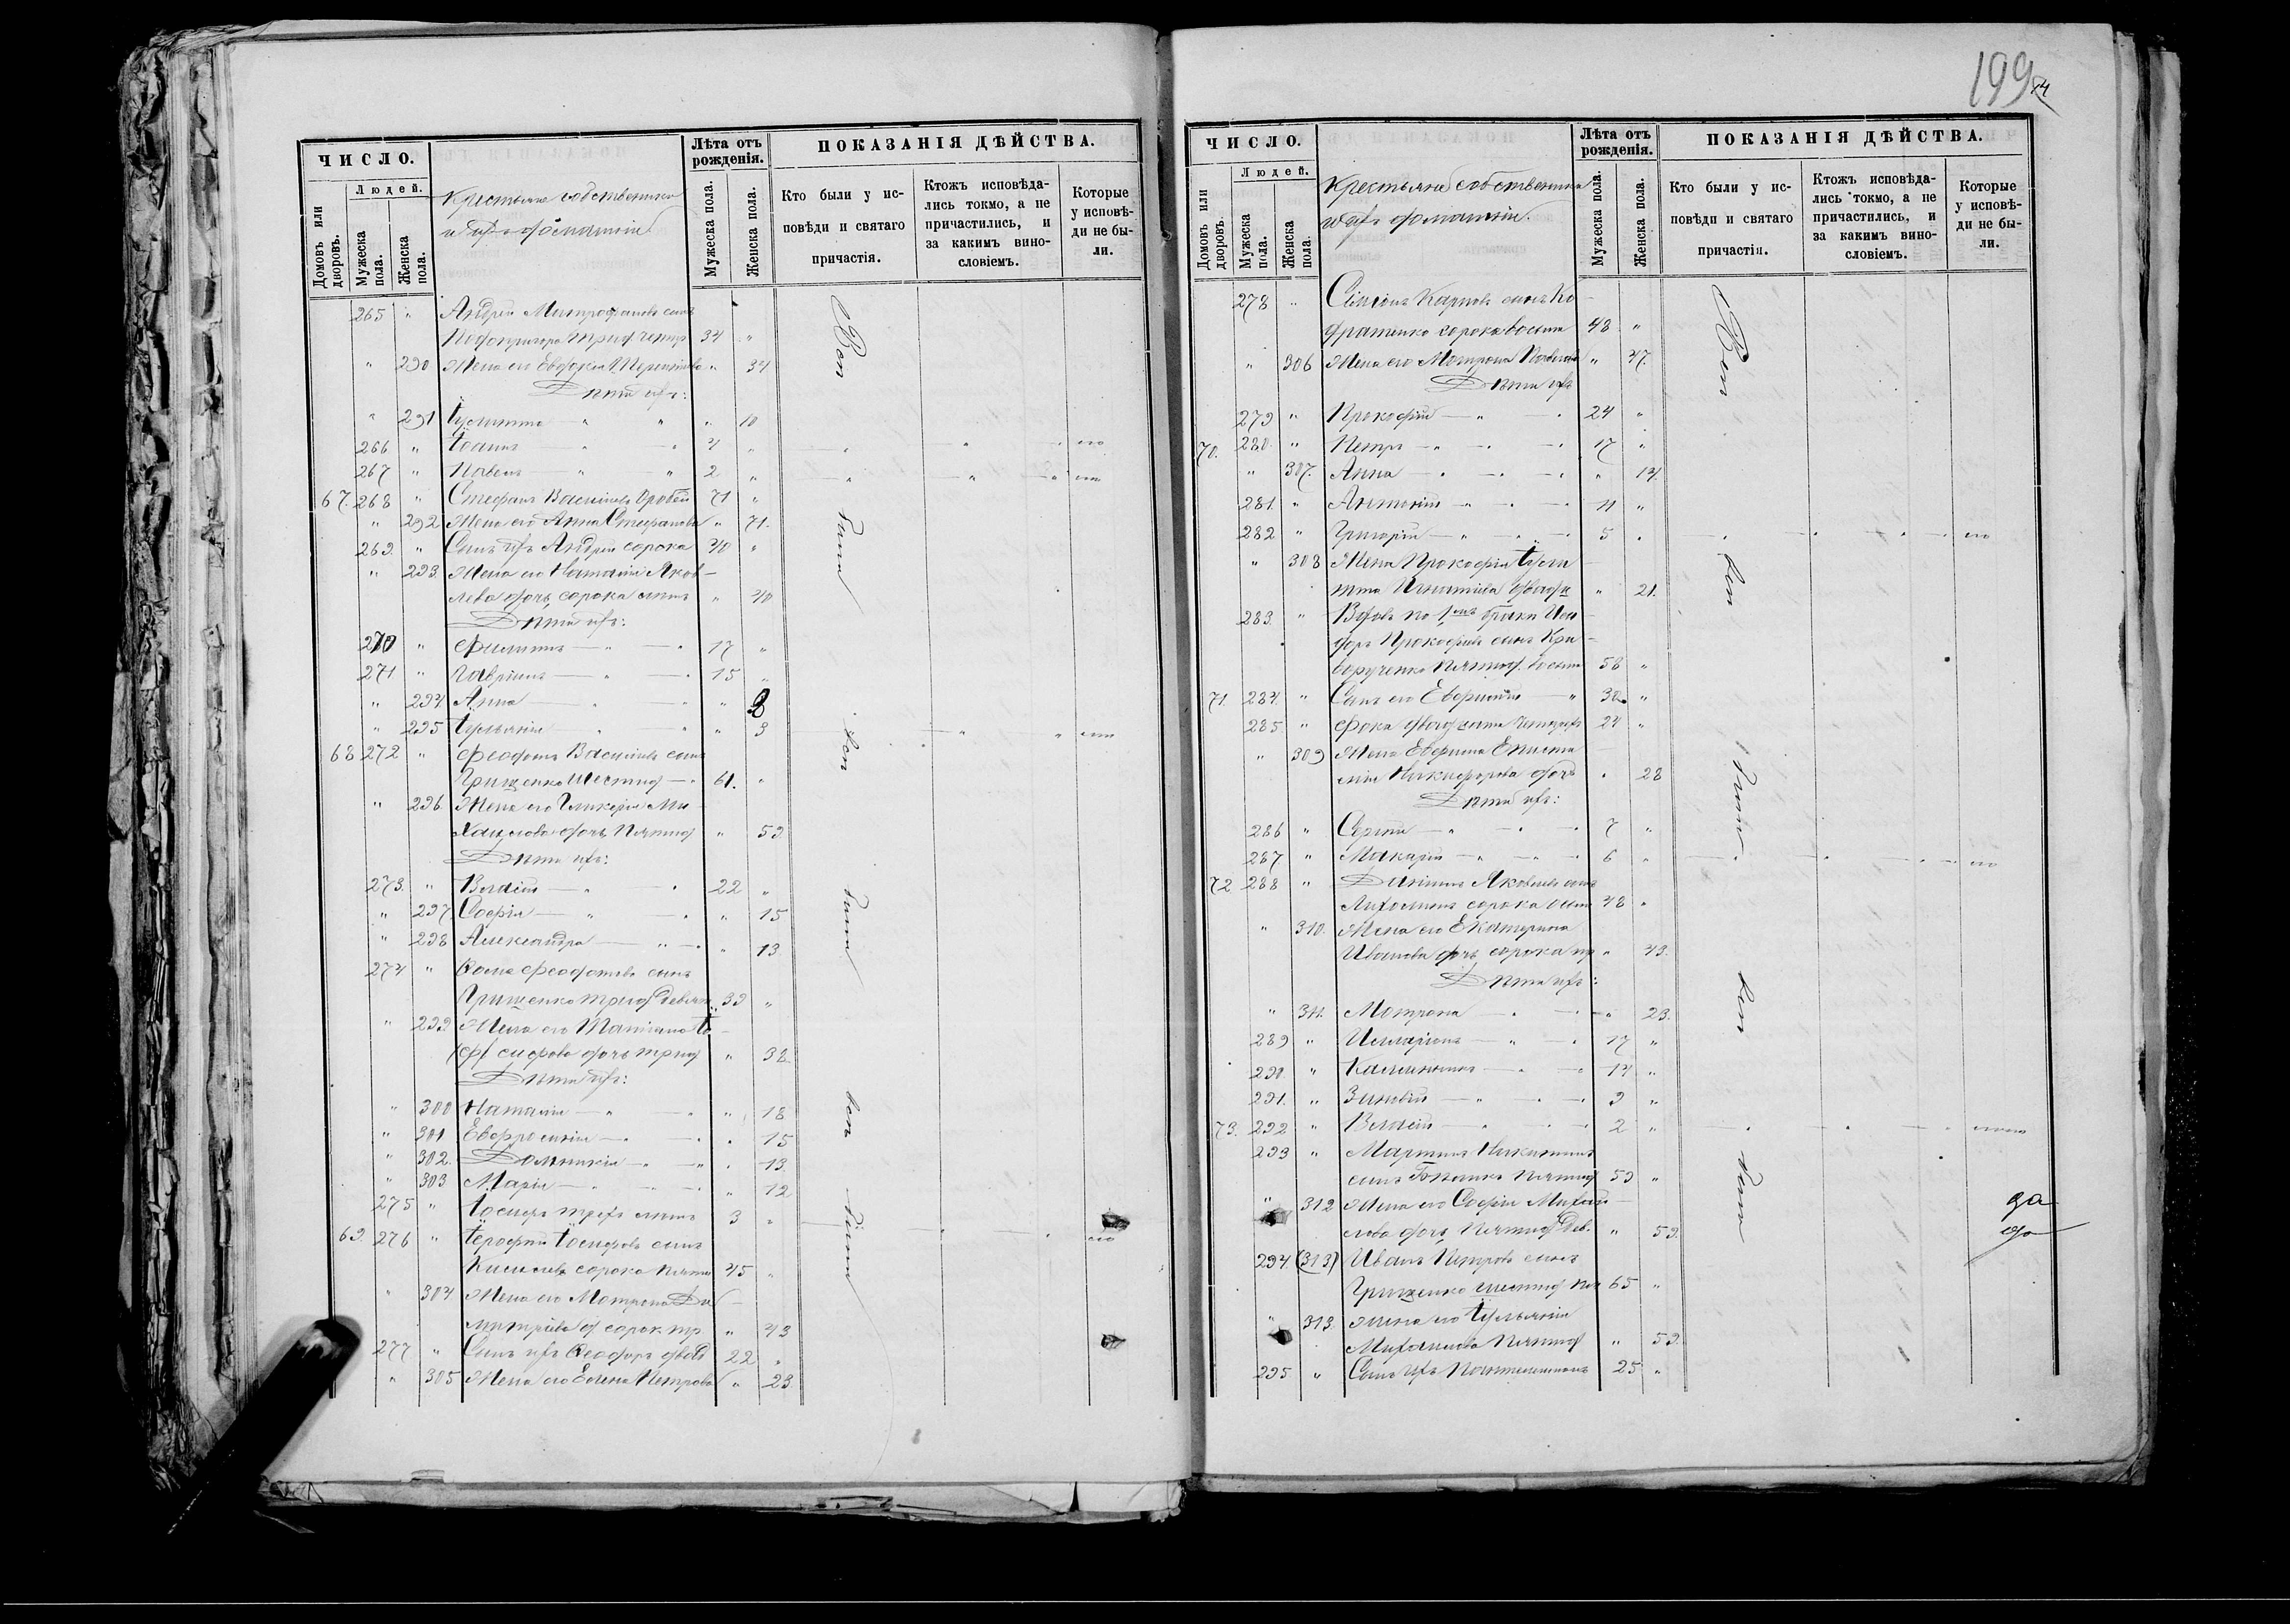 199
ЧИСЛО.
Людей.
Домовъ или дворовъ.
Мужеска пола.
Женска пола.
Крестьяне собственники
и ихъ домашніи
Лѣта отъ рожденія.
Мужеска пола.
Женска пола.
ПОКАЗАНІЯ ДѢЙСТВА.
Кто были у ис-
повѣди и святаго
причастія.
Ктожъ исповѣда-
лись токмо, а не
причастились, и
за какимъ вино-
словіемъ.
Которые
у исповѣ-
ди не бы-
ли.
265 " Андрей Митрофановъ сынъ
34 "
" 290 Жена его Евдокія " 34
Дѣти ихъ:
" 291 " " " 10
266 " Іоаннъ " " 4 "
267 " Павелъ " " 2 "
67. 268 " Стефанъ Василіевъ 71 "
" 292 Жена его Анна Стефанова " 71.
269. " Сынъ ихъ Андрей сорока 40 "
" 293. Жена его Наталія Яков-
лева дочь, сорока " 40
Дѣти ихъ:
270 " Филиппъ " " 17 "
271 " Гавріилъ " " 15 "
" 294 Анна " " " 9
" 295 Іуліанія " " " 3
68 272 " Феодотъ Василіевъ сынъ
Грищенко шестид 61. "
" 296. Жена его Гликерія Ми-
хаилова дочь Пятид " 59.
Дѣти ихъ:
273. " Власій " " 22 "
" 297 Софія " " " 15
" 298 Александра " " " 13
274 " Фома Феодотовъ сынъ
Грищенко трид девят 39 "
" 299 Жена его Татіана Іо-
сифова дочь трид " 38
Дѣти ихъ:
" 300 Наталія " " " 18
" 301 Евфросинія " " " 15
" 302. Домникія " " " 13.
" 303 Марія " " " 12
275 " Іосифъ трехъ 3 "
69. 276 " Іерофей Іосифовъ сынъ
сорока пяти 45 "
" 304 Жена его Мотрона Ди-
митріева д сорок тр " 43
277 " Сынъ ихъ Феодоръ двад 22 "
" 305 Жена его Елена Петрова " 23.
ЧИСЛО.
Людей.
Домовъ или дворовъ.
Мужеска пола.
Женска пола.
Крестьяне собственники
и ихъ домашніи.
Лѣта отъ рожденія.
Мужеска пола.
Женска пола.
ПОКАЗАНІЯ ДѢЙСТВА.
Кто были у ис-
повѣди и святаго
причастія.
Ктожъ исповѣда-
лись токмо, а не
причастились, и
за какимъ вино-
словіемъ.
Которые
у исповѣ-
ди не бы-
ли.
278 " Сімеонъ Карповъ сынъ Ко-
дратенко сорока восьми 48 "
" 306 Жена его Мотрона " 47.
Дѣти ихъ
279 " Прокофій " " 24 "
70. 280. " Петръ " " 17 "
" 307. Анна " " " 14.
281. " Антоній " " 11 "
282 " Григорій " " 5 "
" 308 Жена Прокофія Іули-
тта Игнатіева двадц " 21.
283. " Вдовъ по 1мъ бракѣ Иси-
доръ Прокофіевъ сынъ Кри-
ворученко Пятид. восьми 58 "
71. 284. " Сынъ его Евфимій " 30. "
285 " Фока двадцати четырехъ 24 "
" 309 Жена Евфимія Еписта-
мія Никифорова дочь " 28
Дѣти ихъ:
286 " Сергій " " 7 "
287 " Макарій " " 6 "
72 288 " Даніилъ Яковлевъ сынъ
сорока осьми 48 "
" 310. Жена его Екатерина
Иванова дочь, сорока тр " 43.
Дѣти ихъ:
" 311. Мотрона " " " 23.
289 " Илларіонъ " " 17 "
290. " Каллиникъ " " 14 "
291. " Зиновій " " 9 "
73. 292 " Власій " " 2 "
293 " Мартинъ Никитинъ
сынъ Пятид 59 "
" 312 Жена его Софія Михаи-
лова дочь, Пятид дев. " 59.
да
да
294. (313) Иванъ Петровъ сынъ
Грищенко шестид пя 65 "
" 313. Жена его Іуліанія
Михаилова Пятид " 59.
295 " Сынъ ихъ Пантелеимонъ 25 "